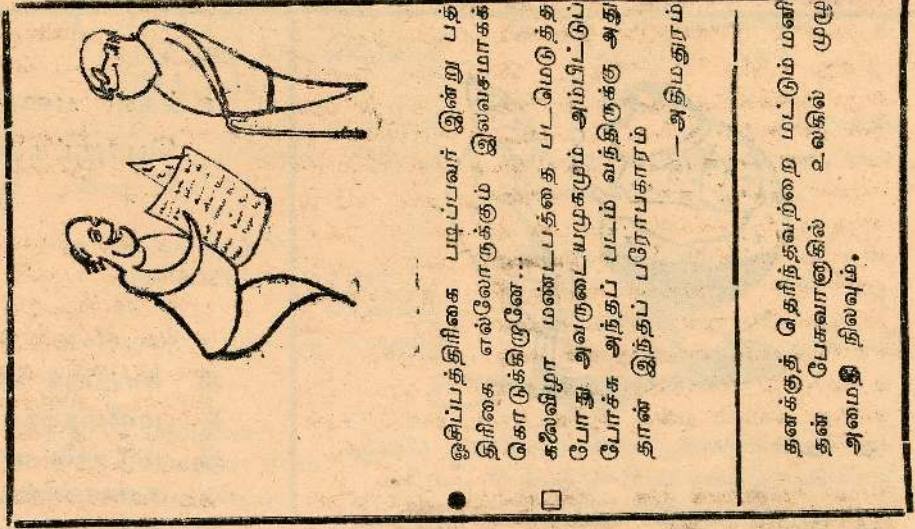 ● ஓசிப்பத்திரிகை படிப்பவர் இன்று பத்
திரிகை எல்லோருக்கும் இலவசமாகக்
கொடுக்கிறானே...
□ கலைவிழா மண்டபத்தை படமெடுத்த
போது அவருடையமுகமும் அம்பிட்டுப்
போச்சு அந்தப் படம் வந்திருக்கு அது
தான் இந்தப் பரோபகாரம்
—அதிமதுரம்
தனக்குத் தெரிந்தவற்றை மட்டும் மனி
தன் பேசுவானாகில் உலகில் முழு
அமைதி நிலவும்.